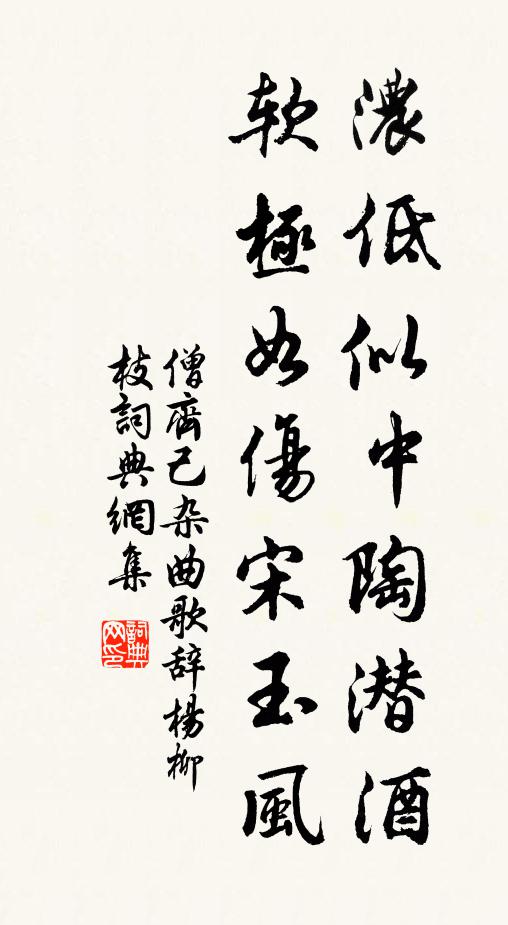 濃低似中陶潜酒
软極如傷宋玉風
僧齊己杂曲歌辞楊柳
枝詞典網集
詞典网印